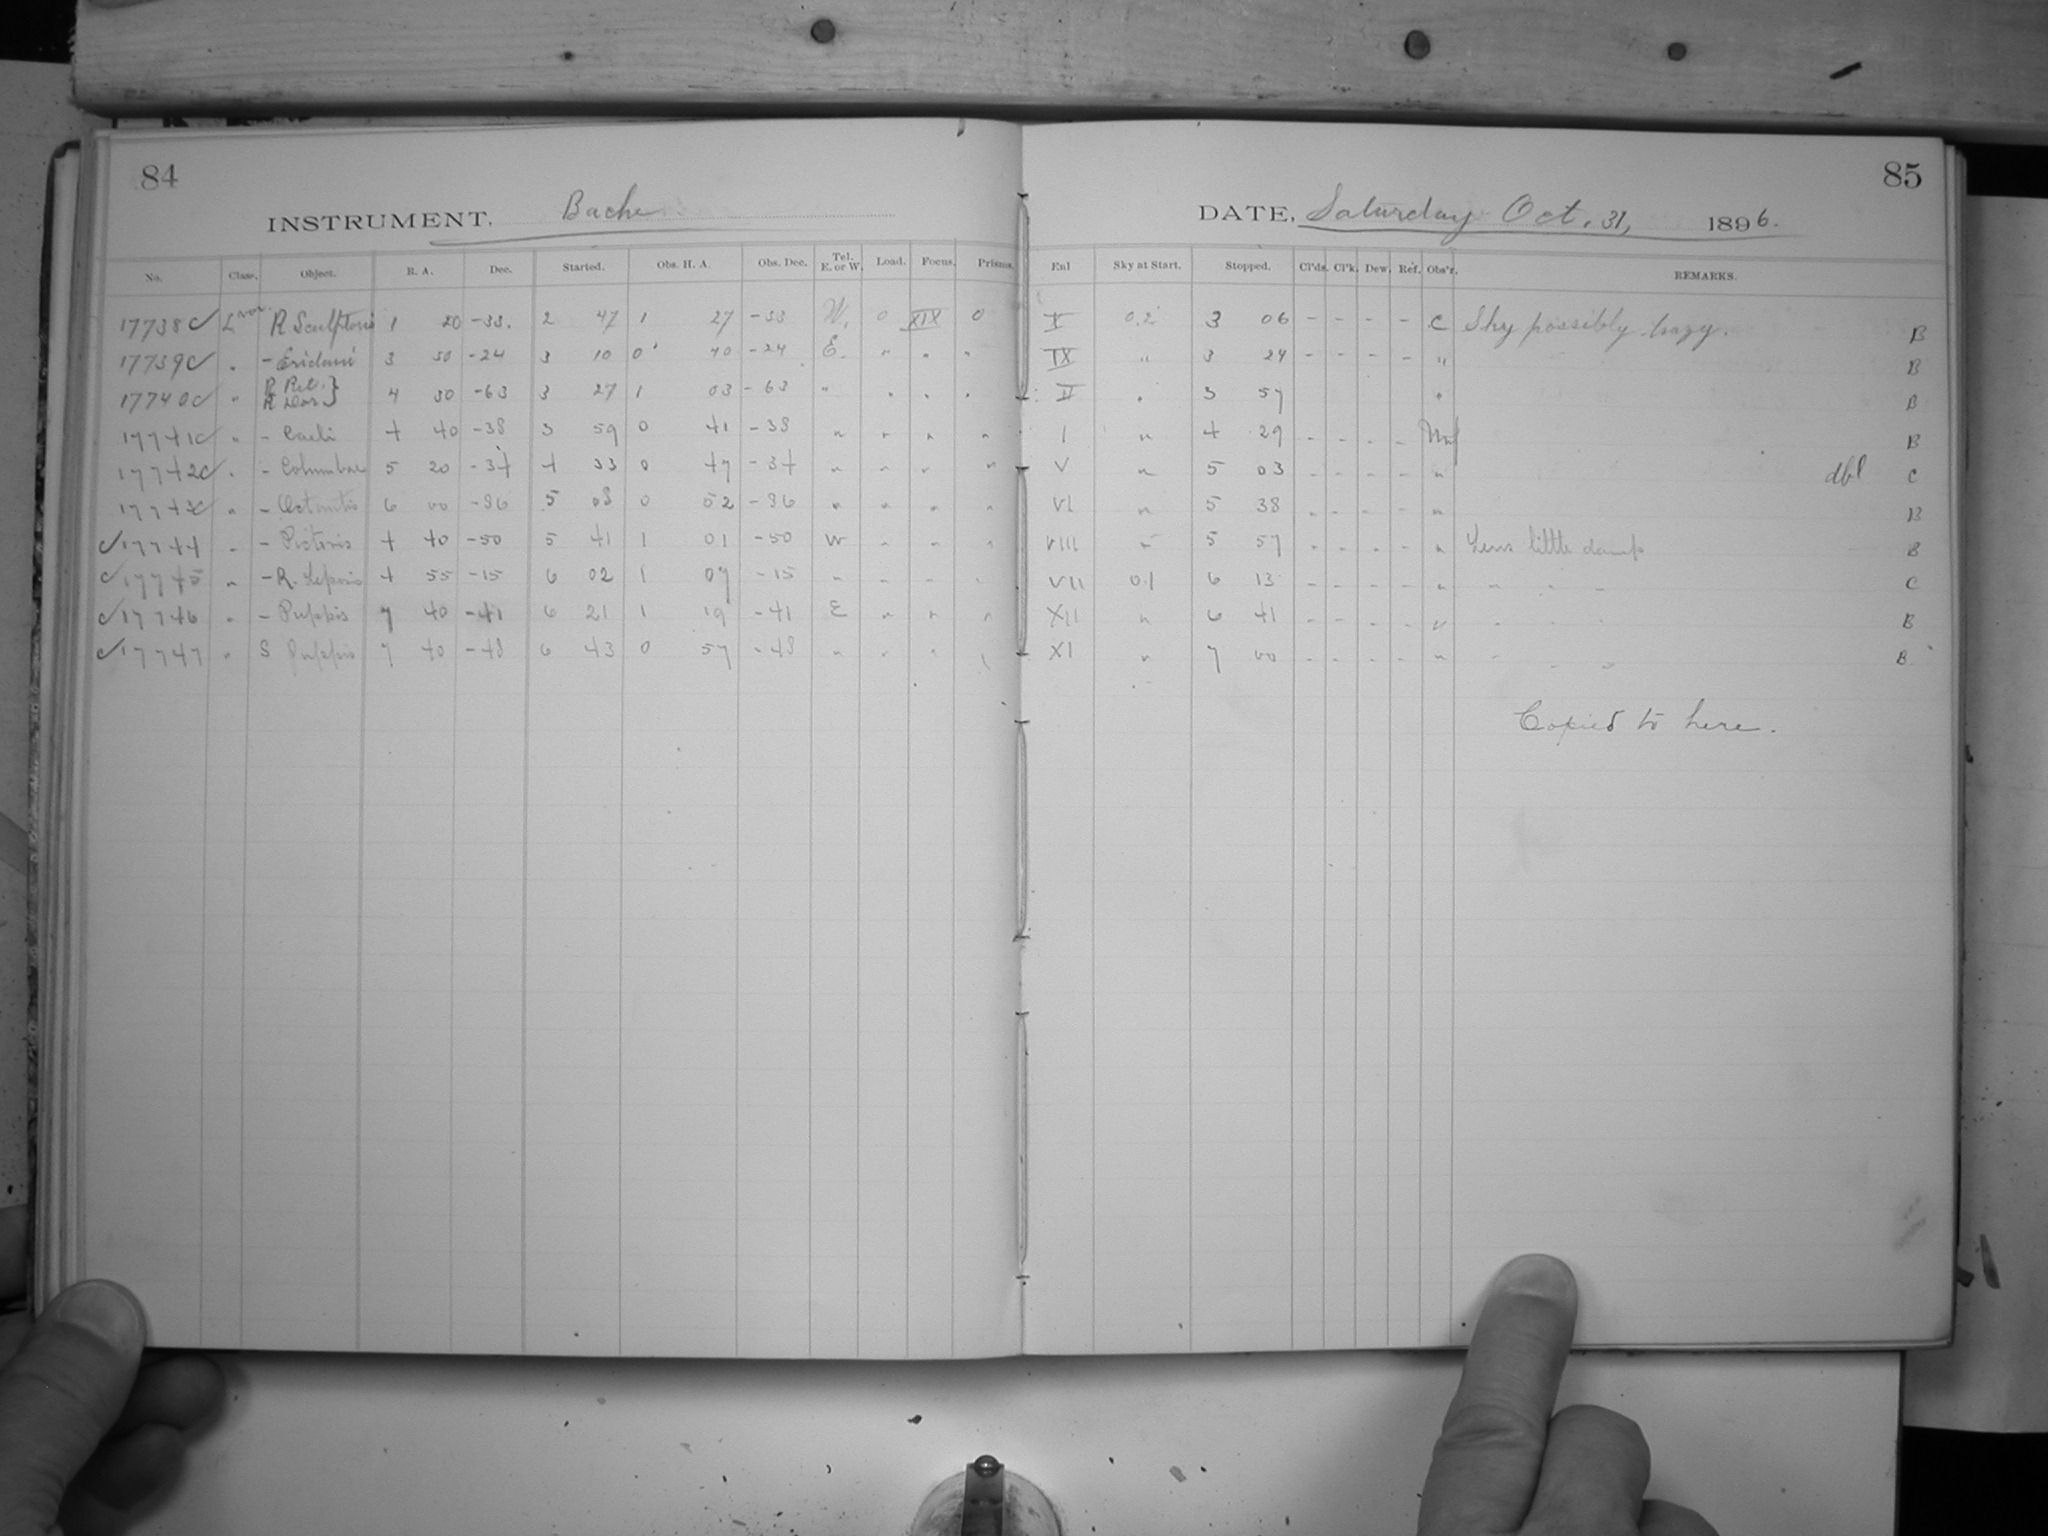 84
85
INSTRUMENT. Bache
DATE, Saturday Oct. 31, 1896.
No. Class. Object. R. A. Dec. Started. Obs. H. A. Obs. Dec. Tel. E. or W. Load. Focus. Prisms. Enl Sky at Start. Stopped. Cl'ds. Cl'k. Dew. Ref. Obs'r. REMARKS.
17738 c L var. R Sculptoris 1 20 -33. 2 47 1 27 -33 W. 0 XIX 0 X 0.2 3 06 - - - - C Sky possibly hazy. B
17739 c " - Eridani 3 50 -24 3 10 0 40 -24 E. " " " IX " 3 24 - - - - " B
17740 c " R Ret. } R Dor. } 4 30 -63 3 27 1 03 -63 " " " " II " 3 57 " B
17741 c " - Caeli 4 40 -38 3 59 0 41 -38 " " " " I " 4 29 - - - - B
17742 c " - Columbae 5 20 -34 4 33 0 47 -34 " " " " V " 5 03 - - - - " dbl C
17743 c " - Octantis 6 00 -86 5 08 0 52 -86 " " " " VI " 5 38 - - - - " B
c 17744 " - Pictoris 4 40 -50 5 41 1 01 -50 W " " " VIII " 5 57 - - - - " Lens little damp B
c 17745 " - R. Leporis 4 55 -15 6 02 1 07 -15 " " " " VII 0.1 6 13 - - - - " " " " C
c 17746 " - Puppis 7 40 -41 6 21 1 19 -41 E " " " XII " 6 41 - - - - " " " " B
c 17747 " S Puppis 7 40 -48 6 43 0 57 -48 " " " " XI " 7 00 - - - - " " " " B
Copied to here.